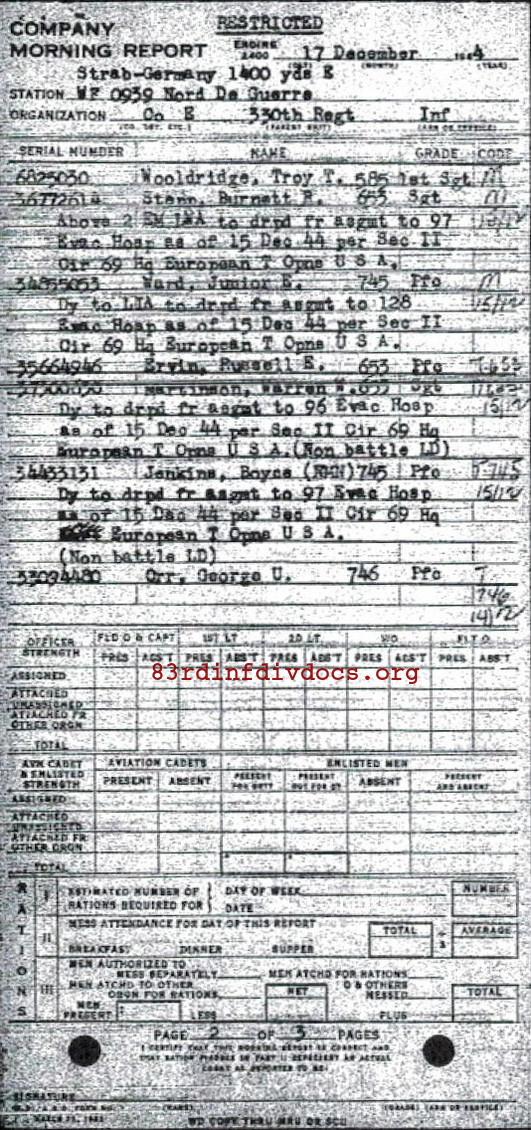 RESTRICTED
COMPANY
MORNING REPORT ENDING 2400 17 December 1944
Strab-Germany 1400 yds E
STATION WF 0939 Nord De Guerre
ORGANIZATION Co E 330th Regt Inf
SERIAL NUMBER NAME GRADE CODE
6825030 Wooldridge, Troy T. 585 1st Sgt M
36772614 Stern, Burnett R. 653 Sgt M
Above 2 EM LWA to drpd fr asgmt to 97
Evac Hosp as of 15 Dec 44 per Sec II
Cir 69 Hq European T Opns U S A.
34855053 Ward, Junior E. 745 Pfc M
Dy to LIA to drpd fr asgmt to 128 15/12
Evac Hosp as of 15 Dec 44 per Sec II
Cir 69 Hq European T Opns U S A.
35664946 Ervin, Russell E. 653 Pfc T-653
Martinson, Warren W. 653 Sgt
Dy to drpd fr asgmt to 96 Evac Hosp 15/12
as of 15 Dec 44 per Sec II Cir 69 Hq
European T Opns U S A.(Non battle LD)
34433131 Jenkins, Boyce (NMN)745 Pfc T-745
Dy to drpd fr asgmt to 97 Evac Hosp 15/12
as of 15 Dec 44 per Sec II Cir 69 Hq
European T Opns U S A.
(Non battle LD)
33094480 Orr, George U. 746 Pfc T
746
14/12
OFFICER STRENGTH FLD O & CAPT 1ST LT 2D LT WO FLT O
PRES ABS'T PRES ABS'T PRES ABS'T PRES ABS'T PRES ABS'T
ASSIGNED
83rdinfdivdocs.org
ATTACHED UNASSIGNED
ATTACHED FR OTHER ORGN
TOTAL
AVN CADET & ENLISTED STRENGTH AVIATION CADETS ENLISTED MEN
PRESENT ABSENT PRESENT FOR DUTY PRESENT NOT FOR DY ABSENT PRESENT AND ABSENT
ASSIGNED
ATTACHED UNASSIGNED
ATTACHED FR OTHER ORGN
TOTAL
RATIONS
I ESTIMATED NUMBER OF RATIONS REQUIRED FOR DAY OF WEEK DATE NUMBER
II MESS ATTENDANCE FOR DAY OF THIS REPORT TOTAL ÷ 3 AVERAGE
BREAKFAST DINNER SUPPER
III MEN AUTHORIZED TO MESS SEPARATELY MEN ATCHD FOR RATIONS
MEN ATCHD TO OTHER ORGN FOR RATIONS NET O & OTHERS MESSED TOTAL
MEN PRESENT LESS PLUS
PAGE 2 OF 3 PAGES
I CERTIFY THAT THIS MORNING REPORT IS CORRECT AND
THAT RATION FIGURES IN PART II REPRESENT AN ACTUAL
COUNT AS REPORTED TO ME:
SIGNATURE
W.D., A.G.O. FORM NO. 1 (NAME) (GRADE) (ARM OR SERVICE)
MARCH
WD COPY THRU MRU OR SCU